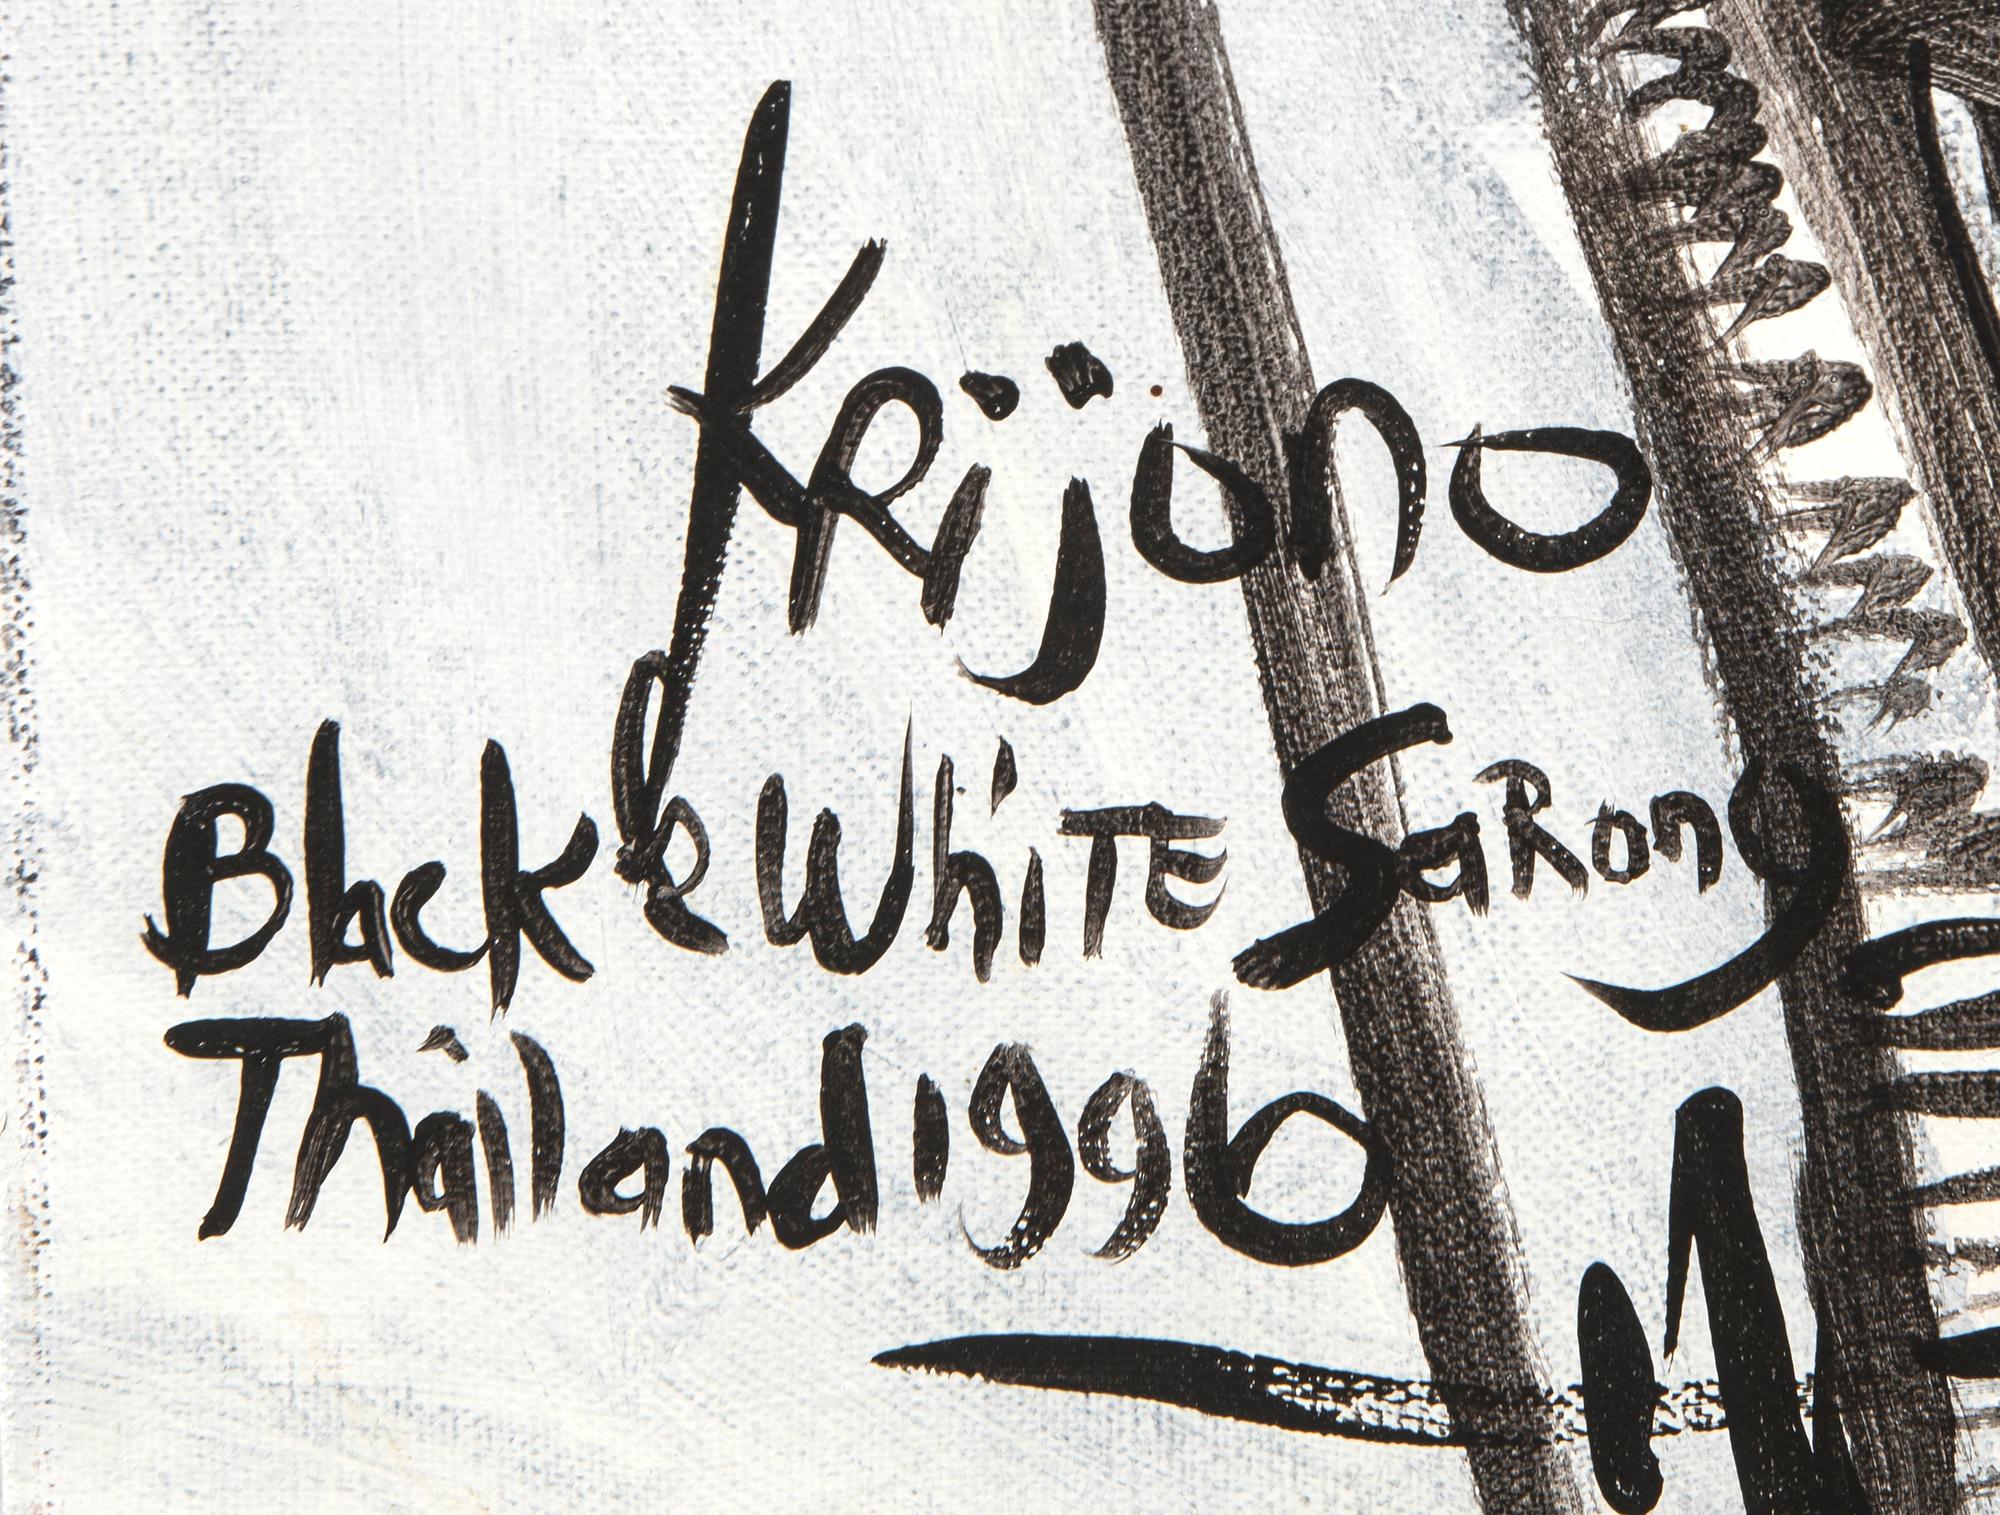 Krijono
Black & White Sarong
Thailand 1996